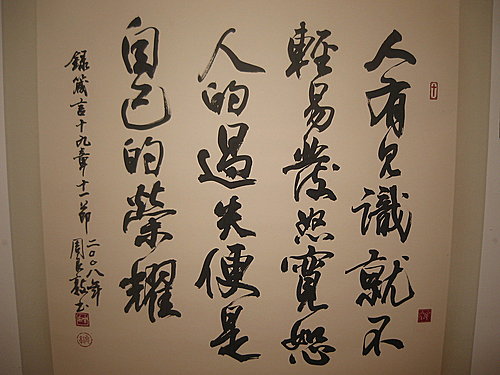 人有見識就不
輕易發怒寬恕
人的過失便是
自己的榮耀
錄箴言十九章十一節
二〇〇八年